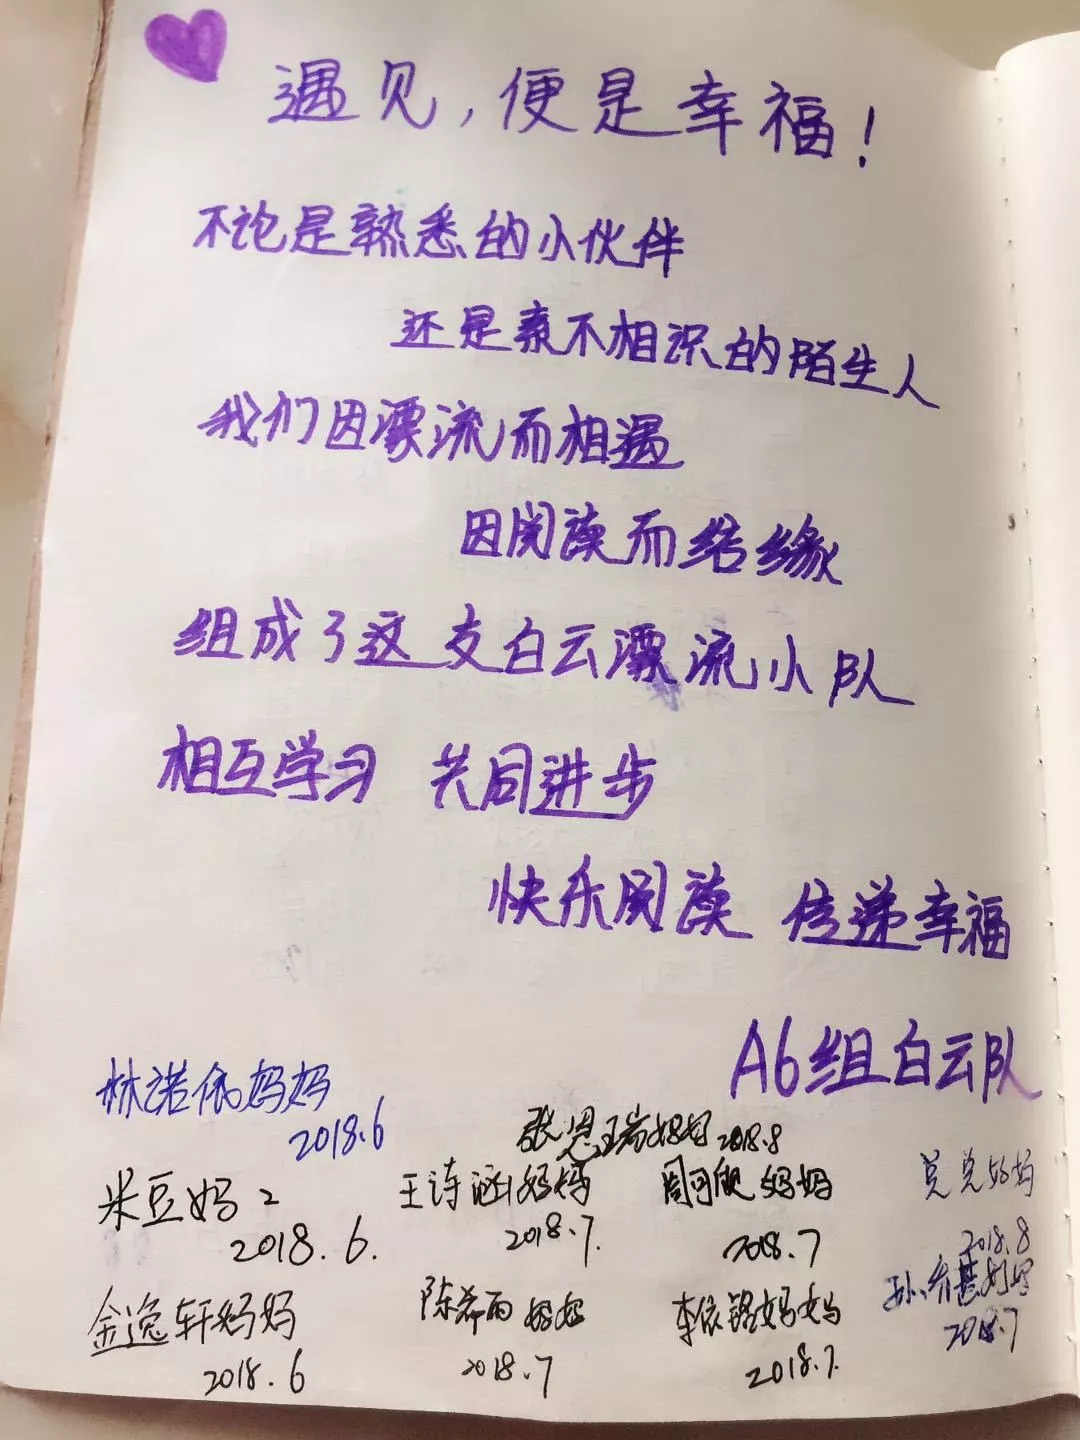 遇见,便是幸福!
不论是熟悉的小伙伴
还是素不相识的陌生人
我们因漂流而相遇
因阅读而结缘
组成了这支白云漂流小队
相互学习 共同进步
快乐阅读 传递幸福
A6组白云队
林诺依妈妈
2018.6
张恩瑞妈妈 2018.8
米豆妈妈
2018.6.
王诗涵妈妈
2018.7.
周可欣妈妈
2018.7
兑兑妈妈
2018.8
金逸轩妈妈
2018.6
陈希雨妈妈
2018.7
李依铭妈妈
2018.7.
妈妈
2018.7